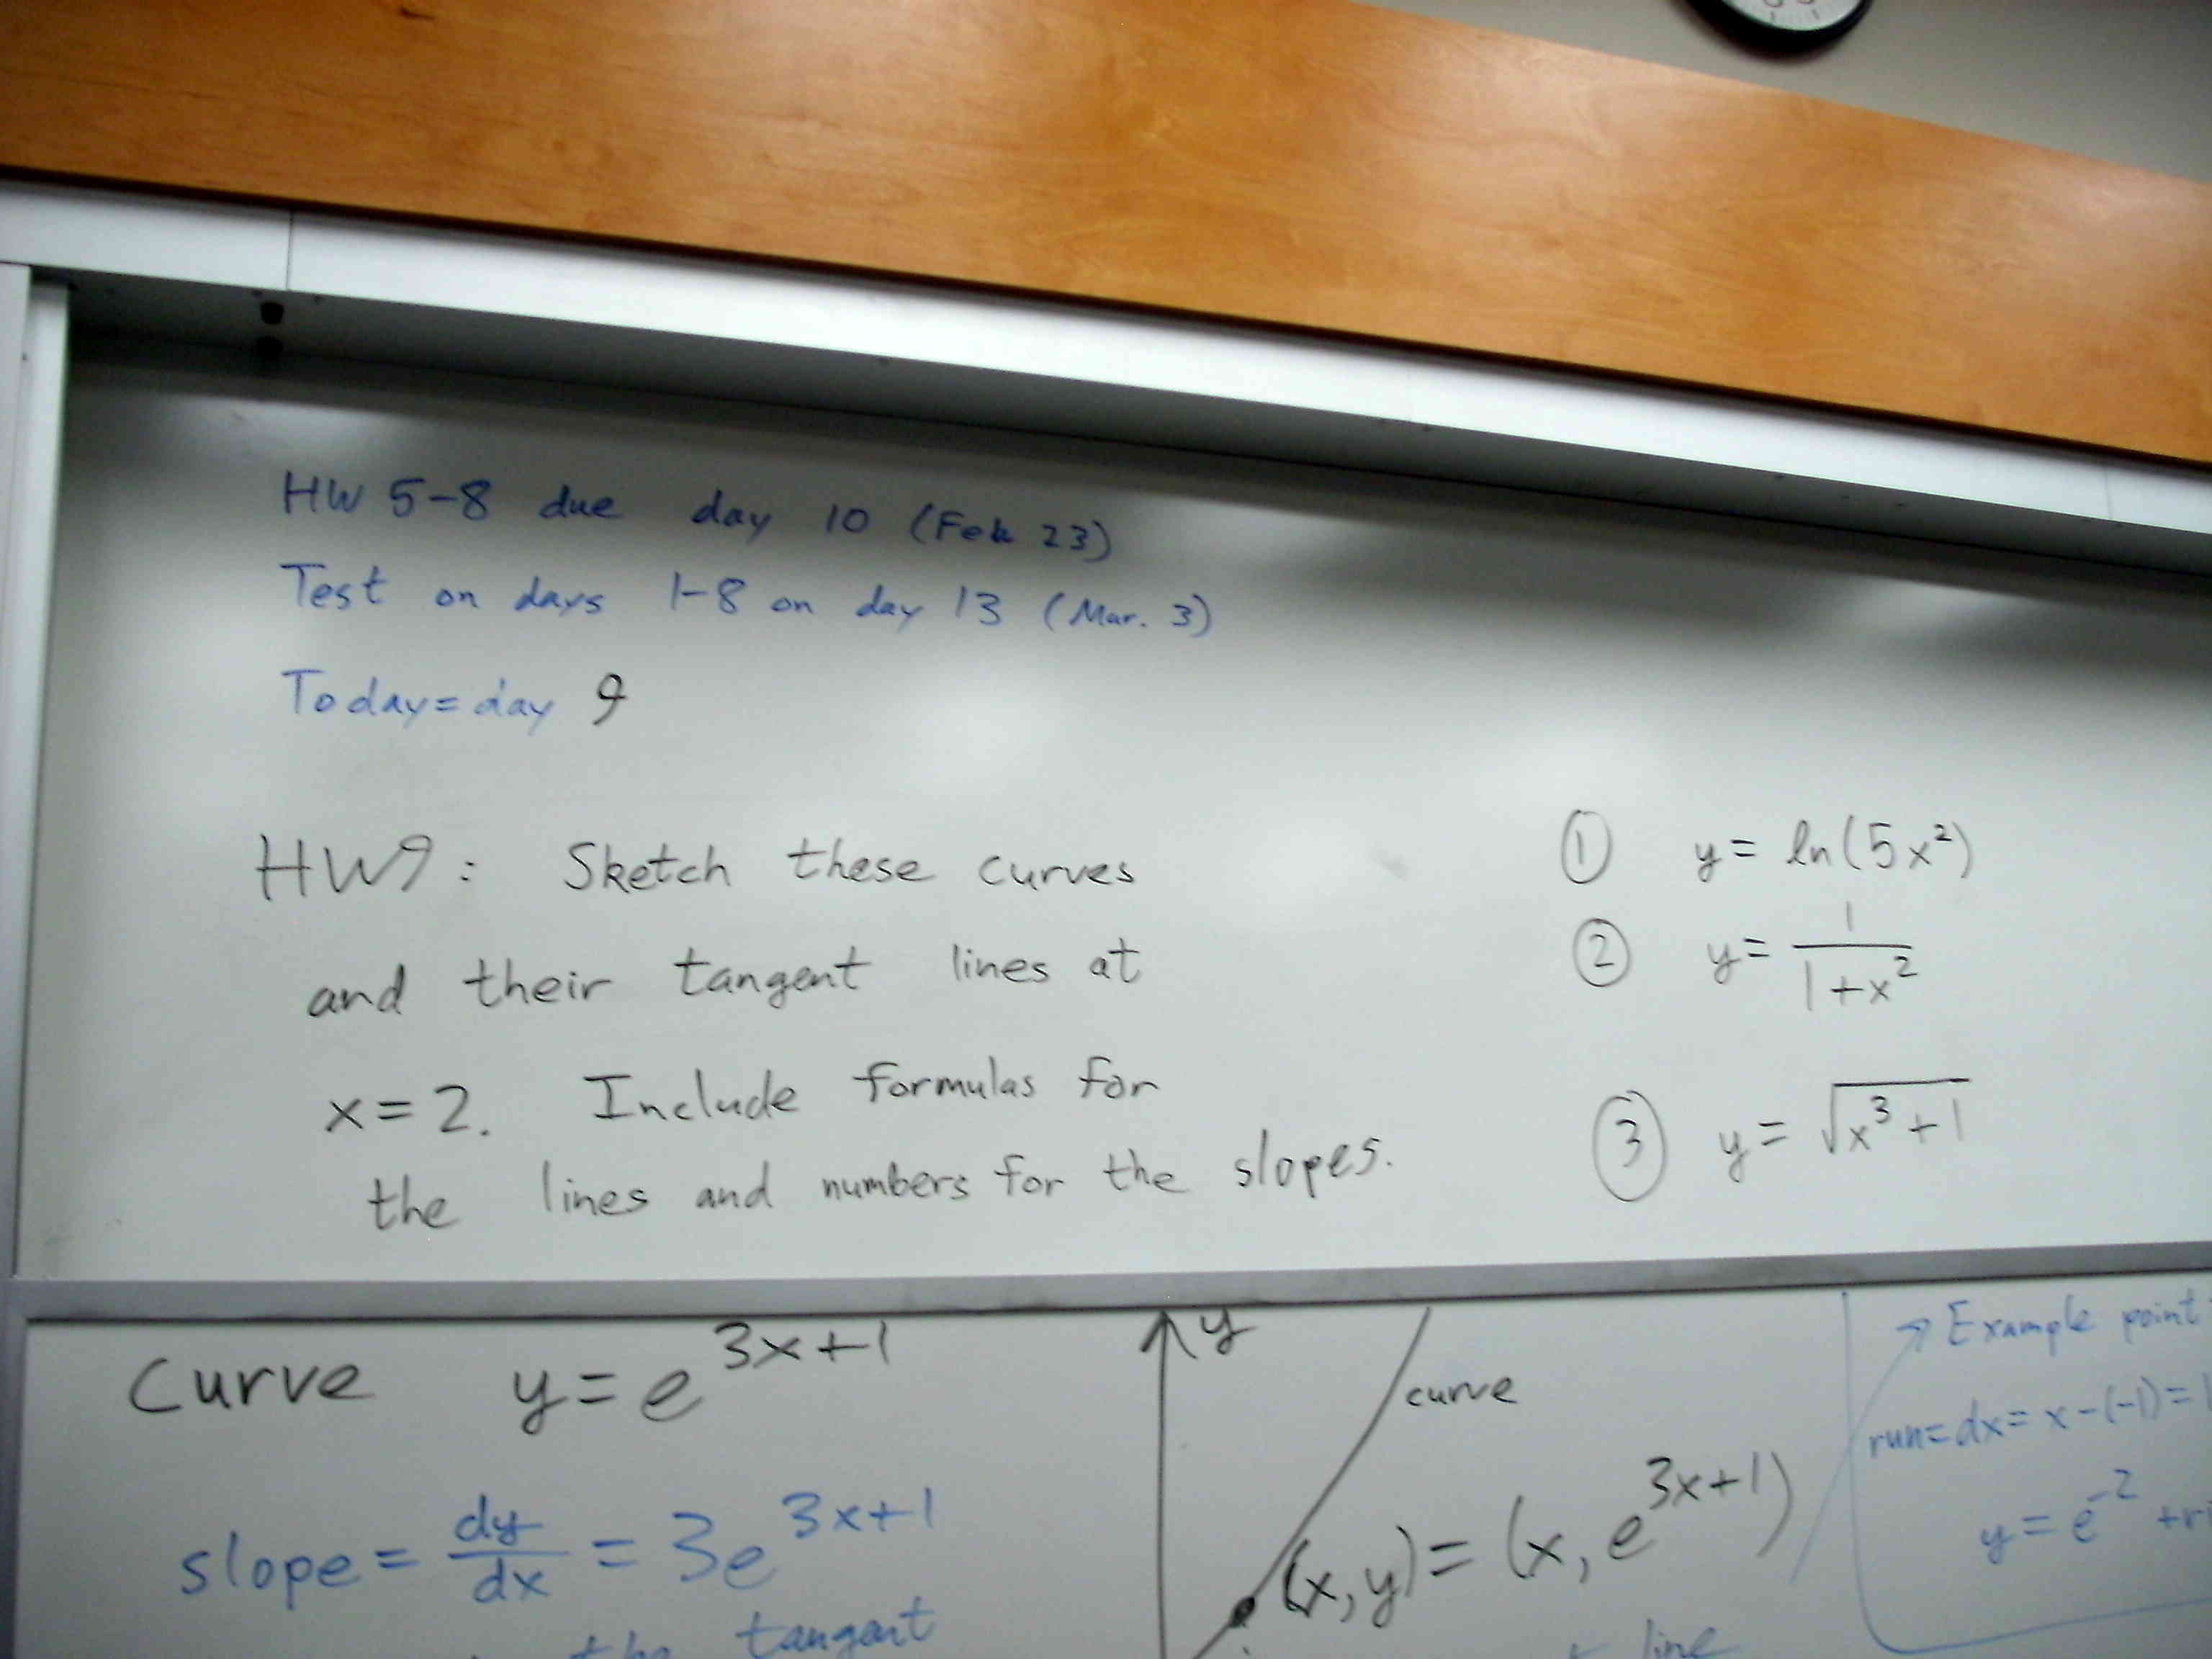 HW 5-8 due day 10 (Feb 23)
Test on days 1-8 on day 13 (Mar. 3)
Today = day 9
HW9: Sketch these curves
and their tangent lines at
x = 2. Include formulas for
the lines and numbers for the slopes.
① y = ln(5x²)
② y = 1/(1+x²)
③ y = √(x³+1)
Curve y = e^(3x+1)
slope = dy/dx = 3e^(3x+1)
the tangent
y
curve
(x,y) = (x, e^(3x+1))
line
Example point
run = dx = x-(-1) =
y = e^(-2) +